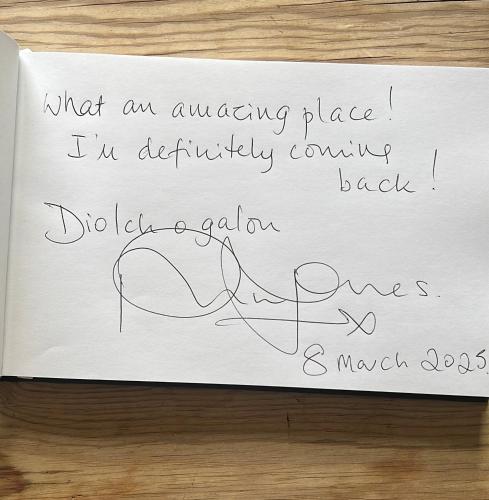 What an amazing place!
I'm definitely coming
back!
Diolch o galon
Jones.
x
8 March 2025.